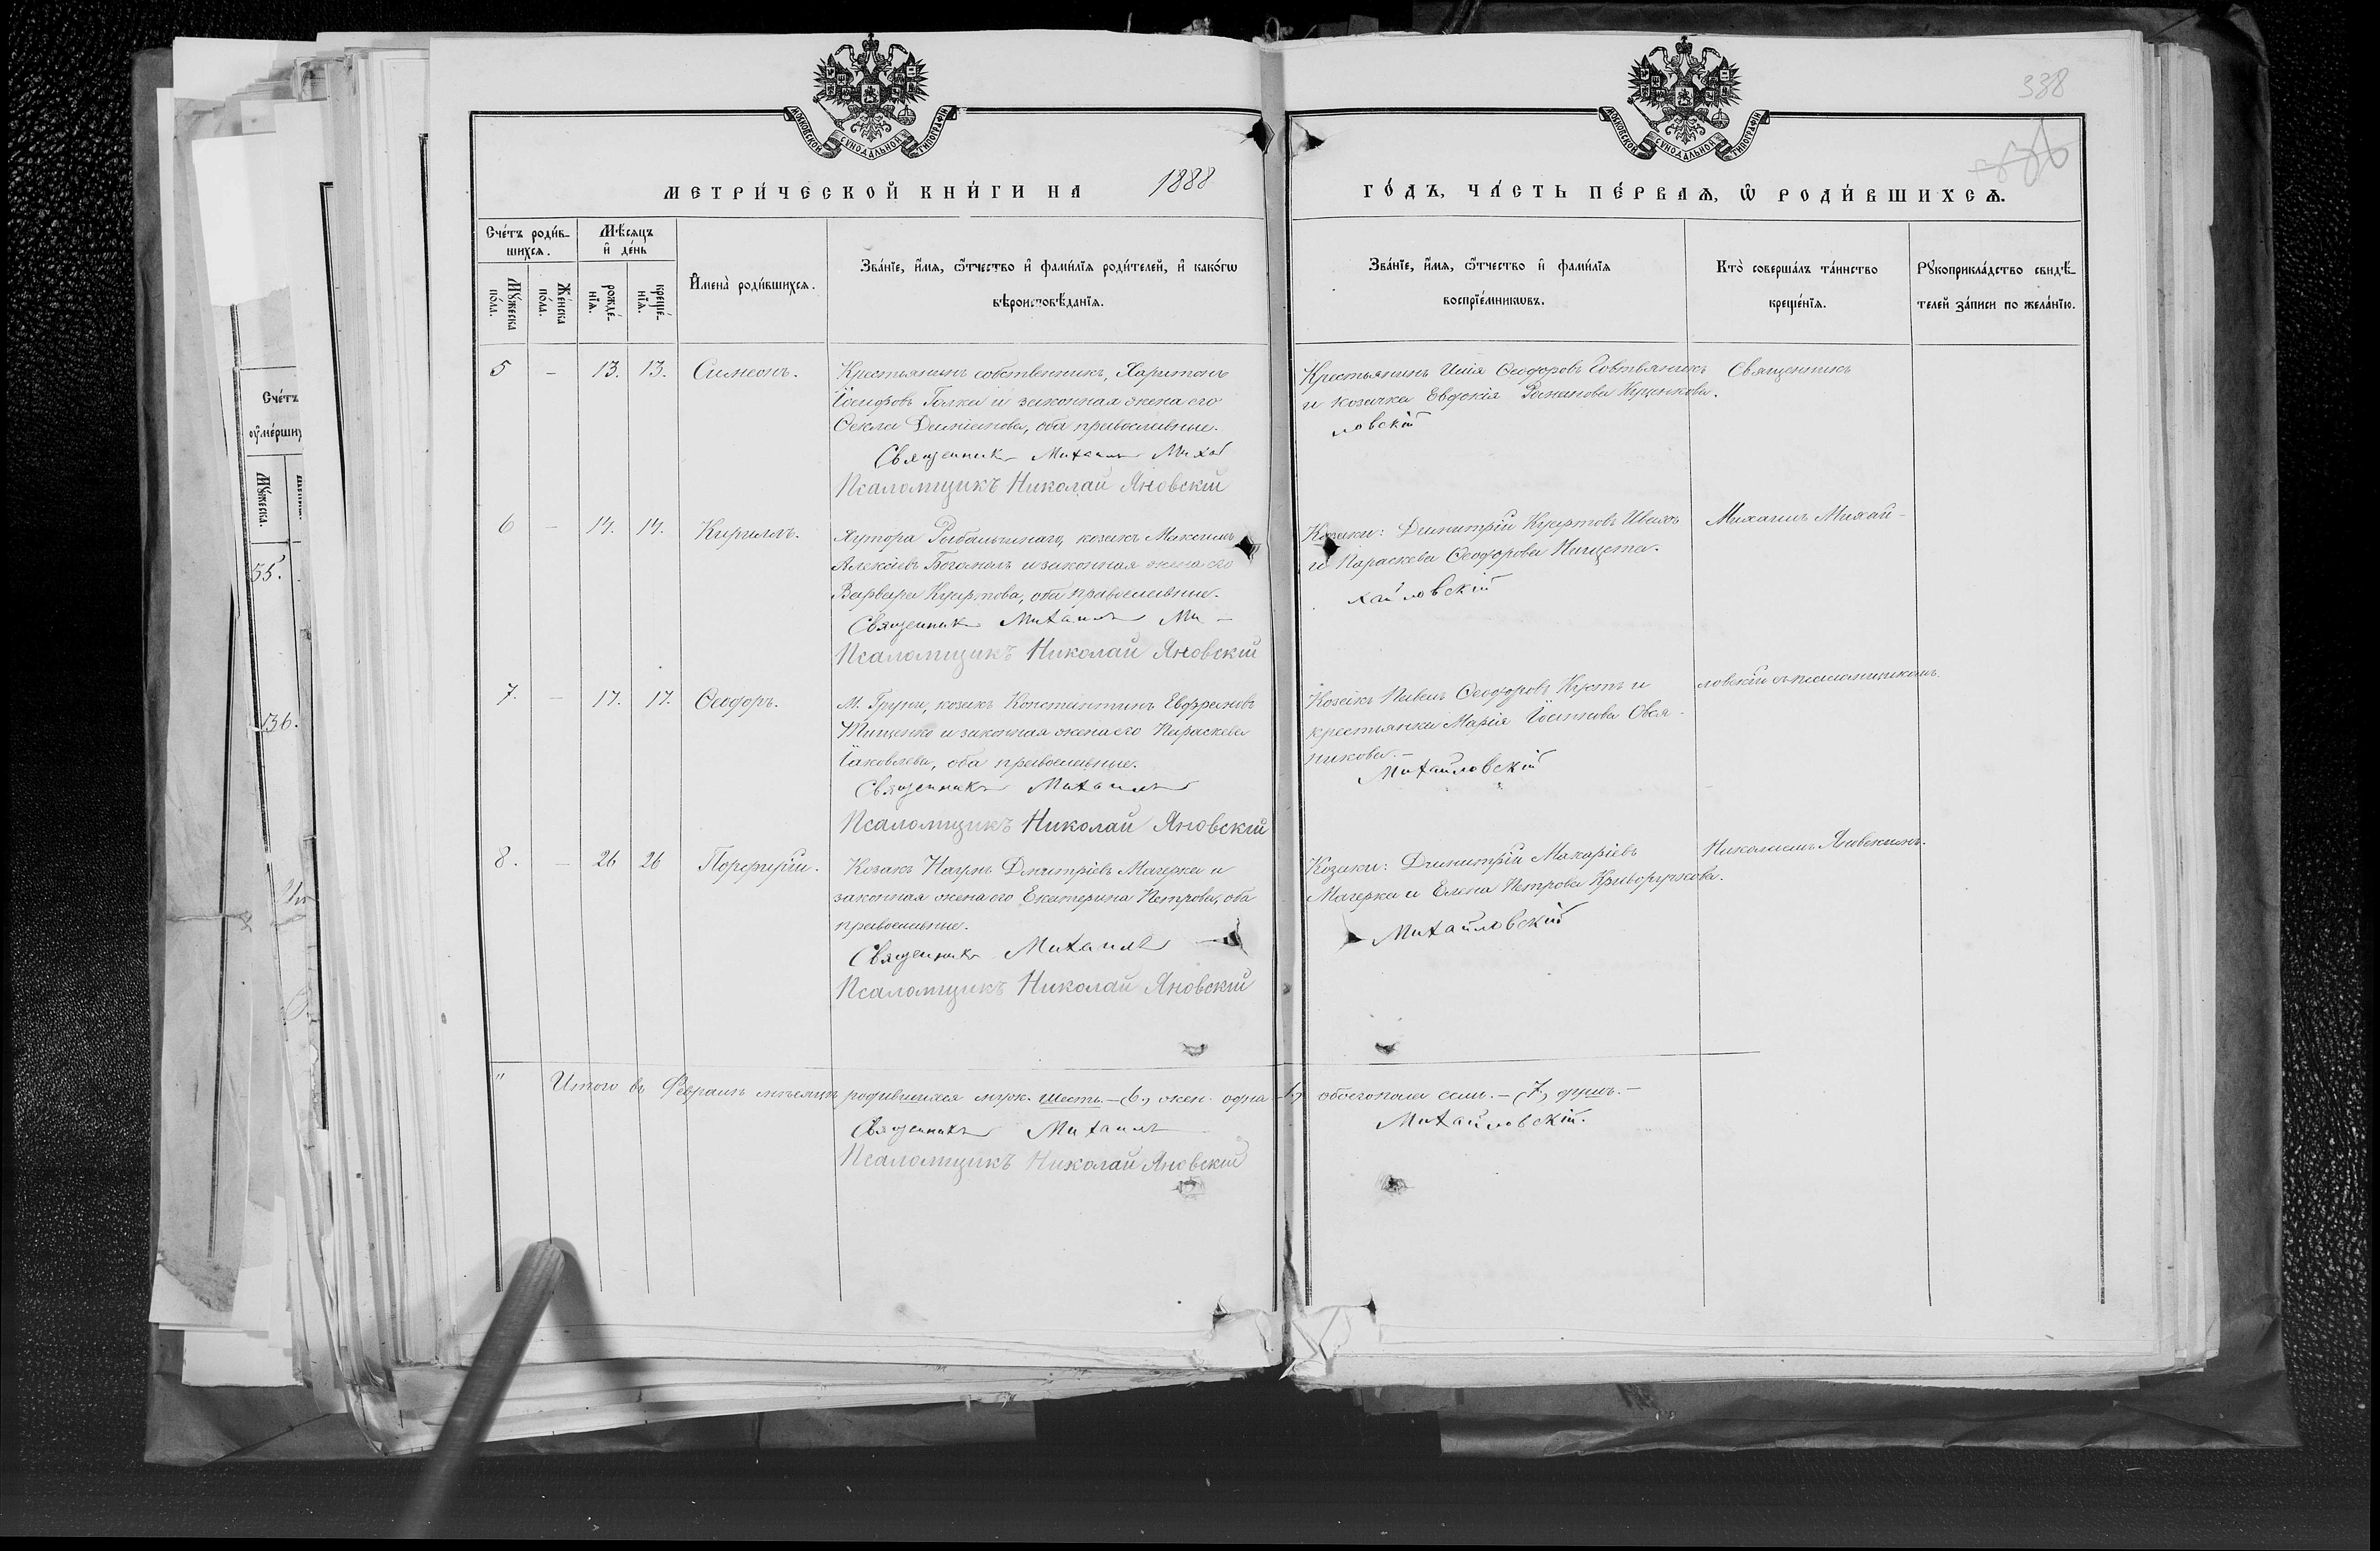 338
МОСКОВСКОЙ СѴНОДАЛЬНОЙ ТИПОГРАФІИ
МОСКОВСКОЙ СѴНОДАЛЬНОЙ ТИПОГРАФІИ
МЕТРИ́ЧЕСКОЙ КНИ́ГИ НА 1888
ГО́ДЪ, ЧА́СТЬ ПЕ́РВАѦ, Ѡ҆ РОДИ́ВШИХСѦ.
Сче́тъ роди́в-
шихсѧ.
Мѣ́сѧцъ
и҆ де́нь
Мꙋ́жеска
по́ла.
Же́нска
по́ла.
рожде́-
нїѧ.
креще́-
нїѧ.
И҆мена̀ роди́вшихсѧ.
Зва́нїе, и҆́мѧ, ѻ҆́тчество и҆ фами́лїѧ роди́телей, и҆ како́гѡ
вѣроисповѣ́данїѧ.
Зва́нїе, и҆́мѧ, ѻ҆́тчество и҆ фами́лїѧ
воспрїе́мникѡвъ.
Кто̀ соверша́лъ та́инство
креще́нїѧ.
Рꙋкоприкла́дство свидѣ́-
телей за́писи по жела́нїю.
5 - 13. 13. Симеонъ.
Крестьянинъ собственникъ, Харитонъ
Іосифовъ Галка и законная жена его
Ѳекла Даміанова, оба православные.
Священникъ Михаилъ Михай
Псаломщикъ Николай Яновскій
Крестьянинъ Илія Ѳеодоровъ Говтвяникъ
и козачка Евдокія Романова Куценкова.
ловскій
Священникъ
6 - 14. 14. Кириллъ.
Хутора Рыбальчинаго, козакъ Максимъ
Алексіевъ Богомолъ и законная жена его
Варвара Куартова, оба православные.
Священникъ Михаилъ Ми -
Псаломщикъ Николай Яновскій
Козаки: Димитрій Куартовъ Ивахъ
и Параскева Ѳеодорова Нищета.
хайловскій
Михаилъ Михай-
7. - 17. 17. Ѳеодоръ.
М. Груни, козакъ Константинъ Евфрановъ
Тищенко и законная жена его Параскева
Іаковлева, оба православные.
Священникъ Михаилъ
Псаломщикъ Николай Яновскій
Козакъ Павелъ Ѳеодоровъ Кустъ и
крестьянка Марія Іоаннова Овся-
никова.-
Михайловскій
ловскій съ псаломщикомъ
8. - 26 26 Порфирій.
Козакъ Наумъ Дмитріевъ Магерка и
законная жена его Екатерина Петрова, оба
православные.
Священникъ Михаилъ -
Псаломщикъ Николай Яновскій
Козаки: Димитрій Макаріевъ
Магерка и Елена Петрова Криворучкова.
Михайловскій
Николаемъ Яновскимъ.
" Итого въ Февралѣ мѣсяцѣ родившихся муж. шесть.-(6.) жен. одна-1.) обоего пола семь.-(7.) душъ.-
Священникъ Михаилъ
Михайловскій.
Псаломщикъ Николай Яновскій
Сче́тъ
Мꙋ́жеска.
55.
136.